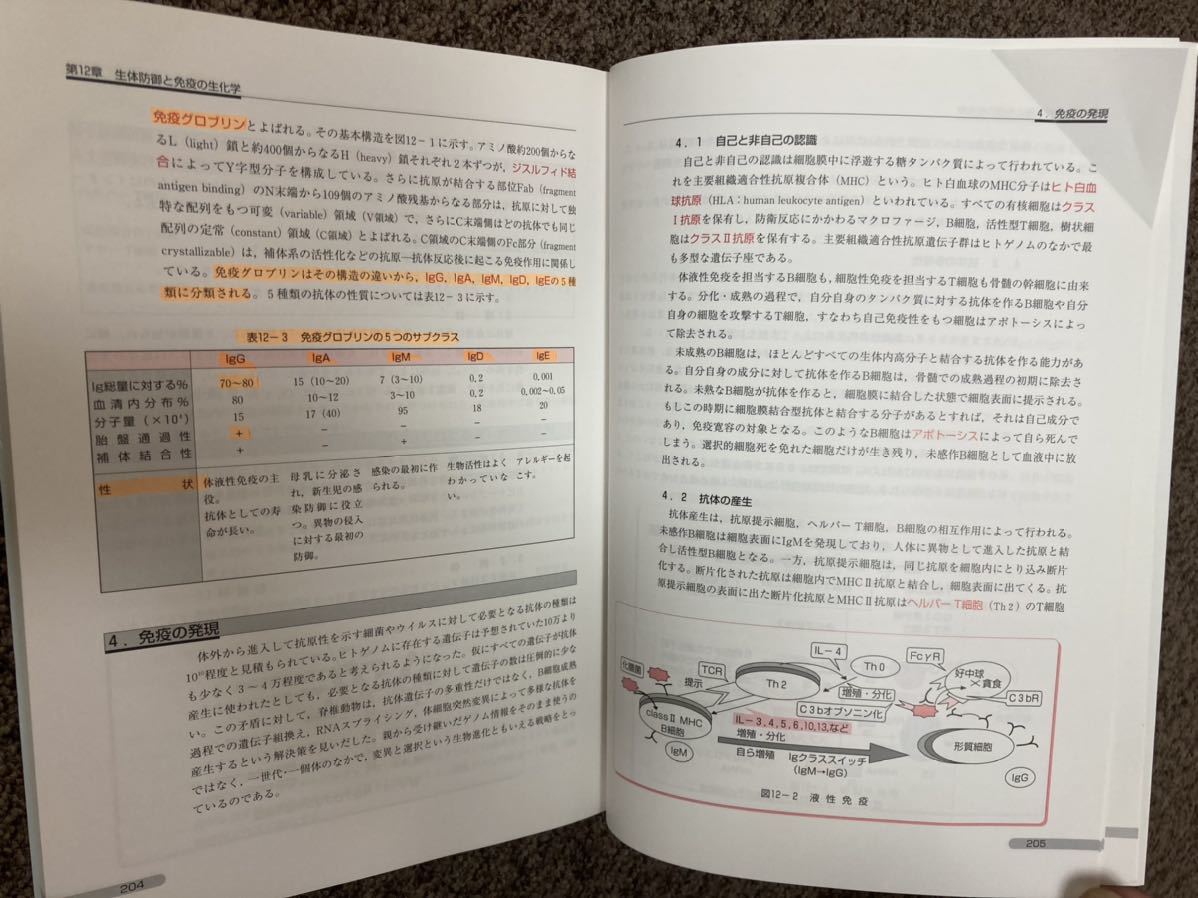 第12章 生体防御と免疫の生化学
免疫グロブリンとよばれる。その基本構造を図12−1に示す。アミノ酸約200個からな
るL（light）鎖と約400個からなるH（heavy）鎖それぞれ2本ずつが，ジスルフィド結
合によってY字型分子を構成している。さらに抗原が結合する部位Fab（fragment
antigen binding）のN末端から109個のアミノ酸残基からなる部分は，抗原に対して独
特な配列をもつ可変（variable）領域（V領域）で，さらにC末端側はどの抗体でも同じ
配列の定常（constant）領域（C領域）とよばれる。C領域のC末端側のFc部分（fragment
crystallizable）は，補体系の活性化などの抗原ー抗体反応後に起こる免疫作用に関係し
ている。免疫グロブリンはその構造の違いから，IgG，IgA，IgM，IgD，IgEの5種
類に分類される。5種類の抗体の性質については表12−3に示す。
表12−3 免疫グロブリンの5つのサブクラス
IgG IgA IgM IgD IgE
Ig総量に対する% 70〜80 15（10〜20） 7（3〜10） 0.2 0.001
血清内分布% 80 10〜12 3〜10 0.2 0.002〜0.05
分子量（×10⁴） 15 17（40） 95 18 20
胎盤通過性 + − − − −
補体結合性 + − + − −
性状
体液性免疫の主
役。
抗体としての寿
命が長い。
母乳に分泌さ
れ，新生児の感
染防御に役立
つ。異物の侵入
に対する最初の
防御。
感染の最初に作
られる。
生物活性はよく
わかっていな
い。
アレルギーを起
こす。
4．免疫の発現
体外から進入して抗原性を示す細菌やウイルスに対して必要となる抗体の種類は
10¹⁰程度と見積もられている。ヒトゲノムに存在する遺伝子は予想されていた10万より
も少なく3〜4万程度であると考えられるようになった。仮にすべての遺伝子が抗体
産生に使われたとしても，必要となる抗体の種類に対して遺伝子の数は圧倒的に少な
い。この矛盾に対して，脊椎動物は，抗体遺伝子の多重性だけではなく，B細胞成熟
過程での遺伝子組換え，RNAスプライシング，体細胞突然変異によって多様な抗体を
産生するという解決策を見いだした。親から受け継いだゲノム情報をそのまま使うの
ではなく，一世代・一個体のなかで，変異と選択という生物進化ともいえる戦略をとっ
ているのである。
204
4．免疫の発現
4．1 自己と非自己の認識
自己と非自己の認識は細胞膜中に浮遊する糖タンパク質によって行われている。こ
れを主要組織適合性抗原複合体（MHC）という。ヒト白血球のMHC分子はヒト白血
球抗原（HLA：human leukocyte antigen）といわれている。すべての有核細胞はクラス
Ⅰ抗原を保有し，防衛反応にかかわるマクロファージ，B細胞，活性型T細胞，樹状細
胞はクラスⅡ抗原を保有する。主要組織適合性抗原遺伝子群はヒトゲノムのなかで最
も多型な遺伝子座である。
体液性免疫を担当するB細胞も，細胞性免疫を担当するT細胞も骨髄の幹細胞に由来
する。分化・成熟の過程で，自分自身のタンパク質に対する抗体を作るB細胞や自分
自身の細胞を攻撃するT細胞，すなわち自己免疫性をもつ細胞はアポトーシスによっ
て除去される。
未成熟のB細胞は，ほとんどすべての生体内高分子と結合する抗体を作る能力があ
る。自分自身の成分に対して抗体を作るB細胞は，骨髄での成熟過程の初期に除去さ
れる。未熟なB細胞が抗体を作ると，細胞膜に結合した状態で細胞表面に提示される。
もしこの時期に細胞膜結合型抗体と結合する分子があるとすれば，それは自己成分で
あり，免疫寛容の対象となる。このようなB細胞はアポトーシスによって自ら死んで
しまう。選択的細胞死を免れた細胞だけが生き残り，未感作B細胞として血液中に放
出される。
4．2 抗体の産生
抗体産生は，抗原提示細胞，ヘルパーT細胞，B細胞の相互作用によって行われる。
未感作B細胞は細胞表面にIgMを発現しており，人体に異物として進入した抗原と結
合し活性型B細胞となる。一方，抗原提示細胞は，同じ抗原を細胞内にとり込み断片
化する。断片化された抗原は細胞内でMHCⅡ抗原と結合し，細胞表面に出てくる。抗
原提示細胞の表面に出た断片化抗原とMHCⅡ抗原はヘルパーT細胞（Th2）のT細胞
化膿菌
提示
TCR
Th2
IL−4
Th0
増殖・分化
C3bオプソニン化
FcγR
好中球
貪食
C3bR
classⅡ MHC
B細胞
IgM
IL−3,4,5,6,10,13,など
増殖・分化
自ら増殖 Igクラススイッチ
（IgM→IgG）
形質細胞
IgG
図12−2 液性免疫
205